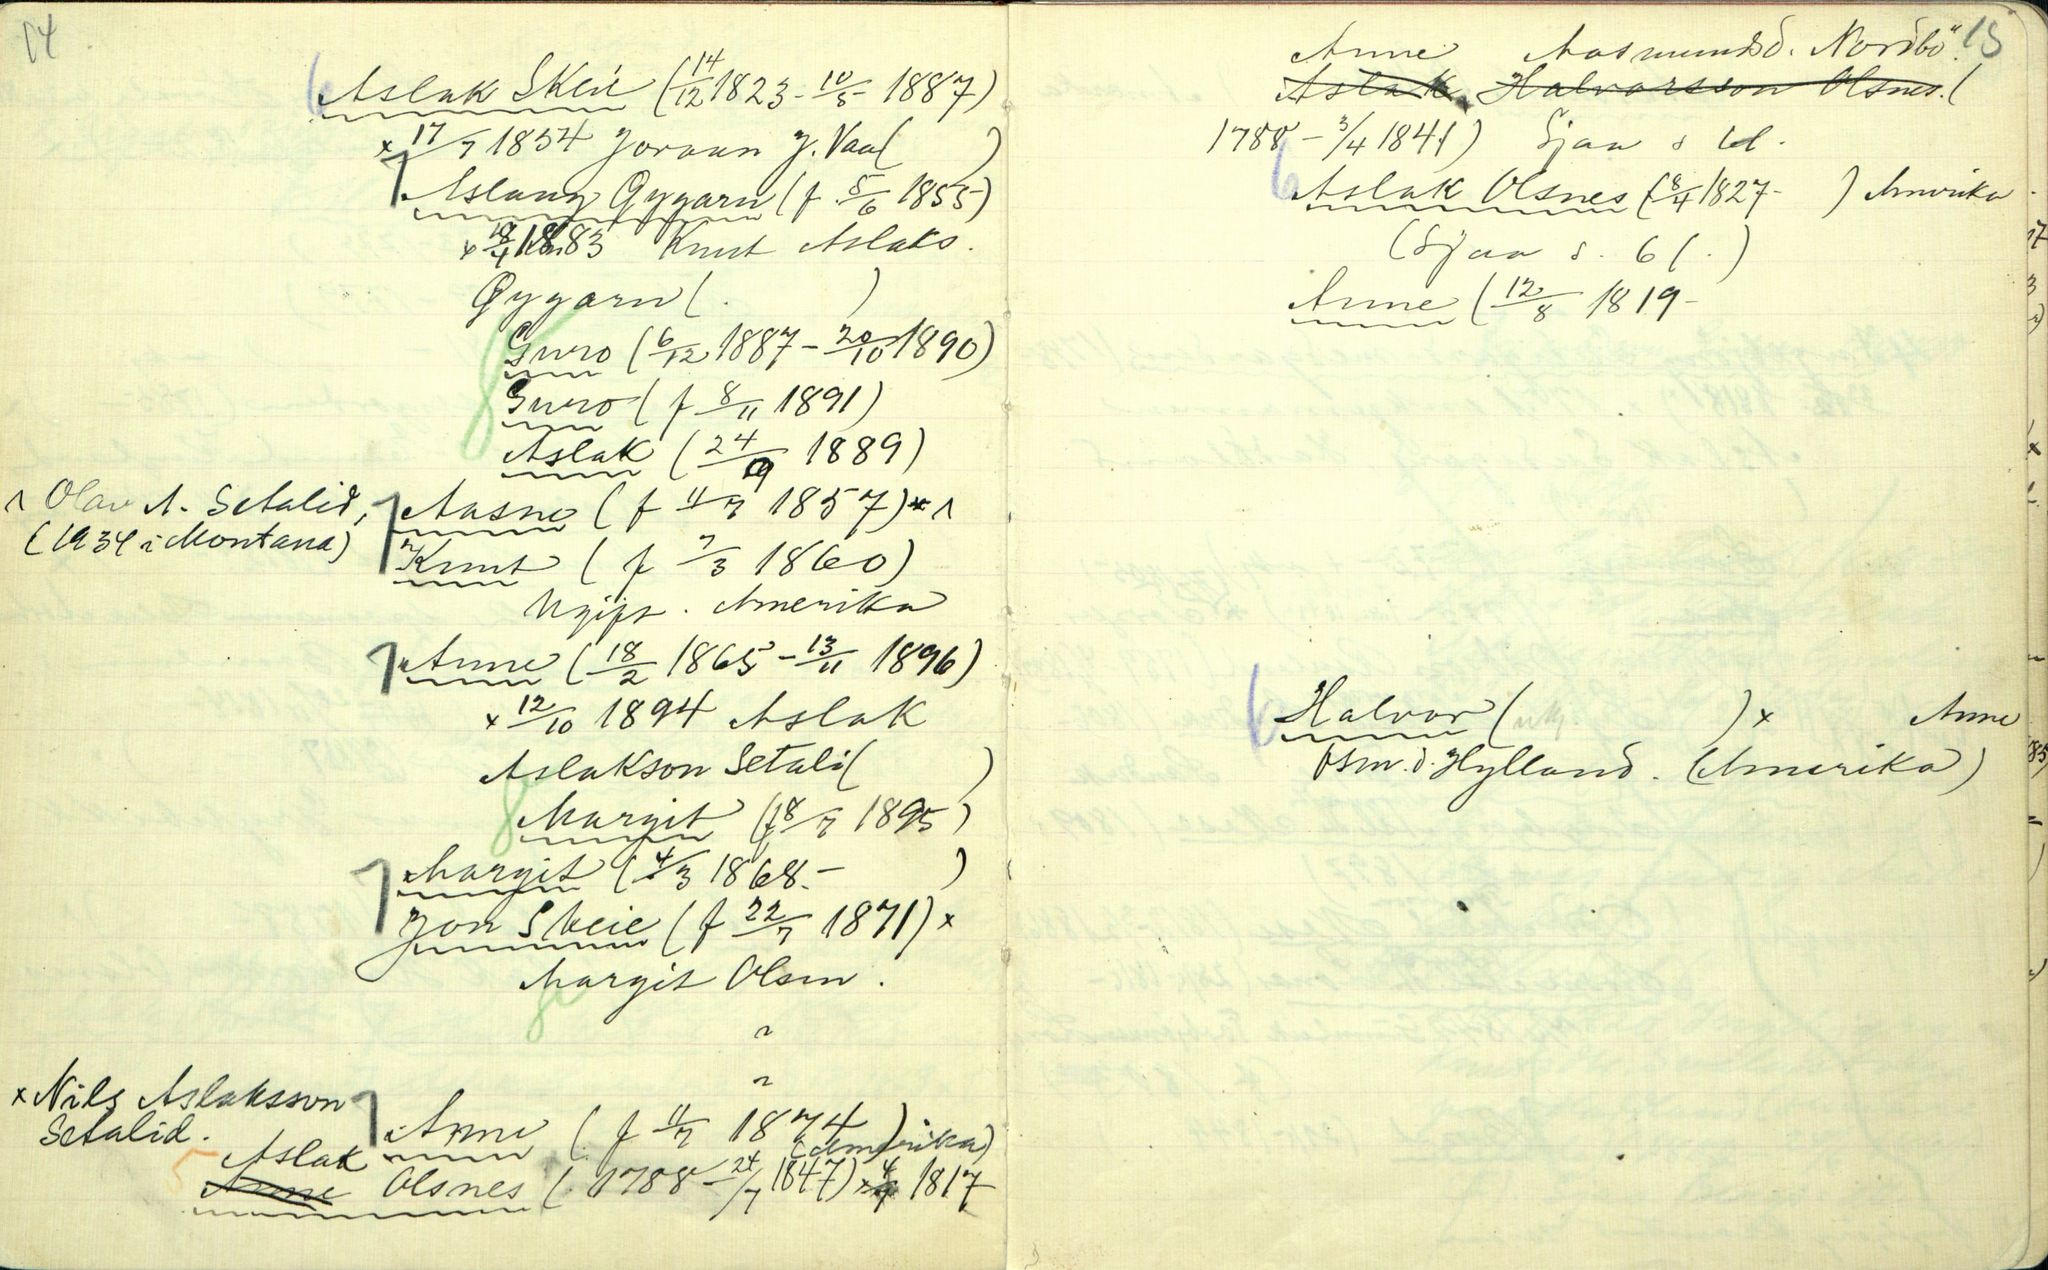 14
6 Aslak Skeie (14/12 1823 - 10/5 1887)
x 17/7 1854 Joraan J. Vaa( )
7 Aslaug Gygarn (f. 5/6 1855)
x 1883 Knut Aslaks.
Gygarn ( . )
8 Guro (6/12 1887 - 20/10 1890)
Guro (f 8/11 1891)
Aslak (24/9 1889)
^ Olav A. Setalid,
(1934 i Montana)
7 Aasne (f 11/7 1857) x ^
Knut (f 7/3 1860)
Ugift. Amerika
7 Anne (18/2 1865 - 13/11 1896)
x 12/10 1894 Aslak
Aslakson Setali( )
8 Margit (f 8/7 1895)
7 Margit (4/3 1868 - )
Jon Skeie (f 22/7 1871) x
8 Margit Olsm.
"
"
x Nils Aslaksson
Setalid.
7 Anne (f 11/7 1874)
(Amerika)
5 Aslak
Anne Olsnes (1788 - 24/7 1847) x 4/7 1817
15
Anne Aasmundsd. Noribö".
Aslak Halvorsson Olsnes. (
1788 - 3/4 1841) Sjaa s 61.
6 Aslak Olsnes (8/4 1827 - ) Amerika
(Sjaa s. 61.)
Anne (12/8 1819 -
6 Halvor ( ) x Anne
Osm.d. Hylland. (Amerika)